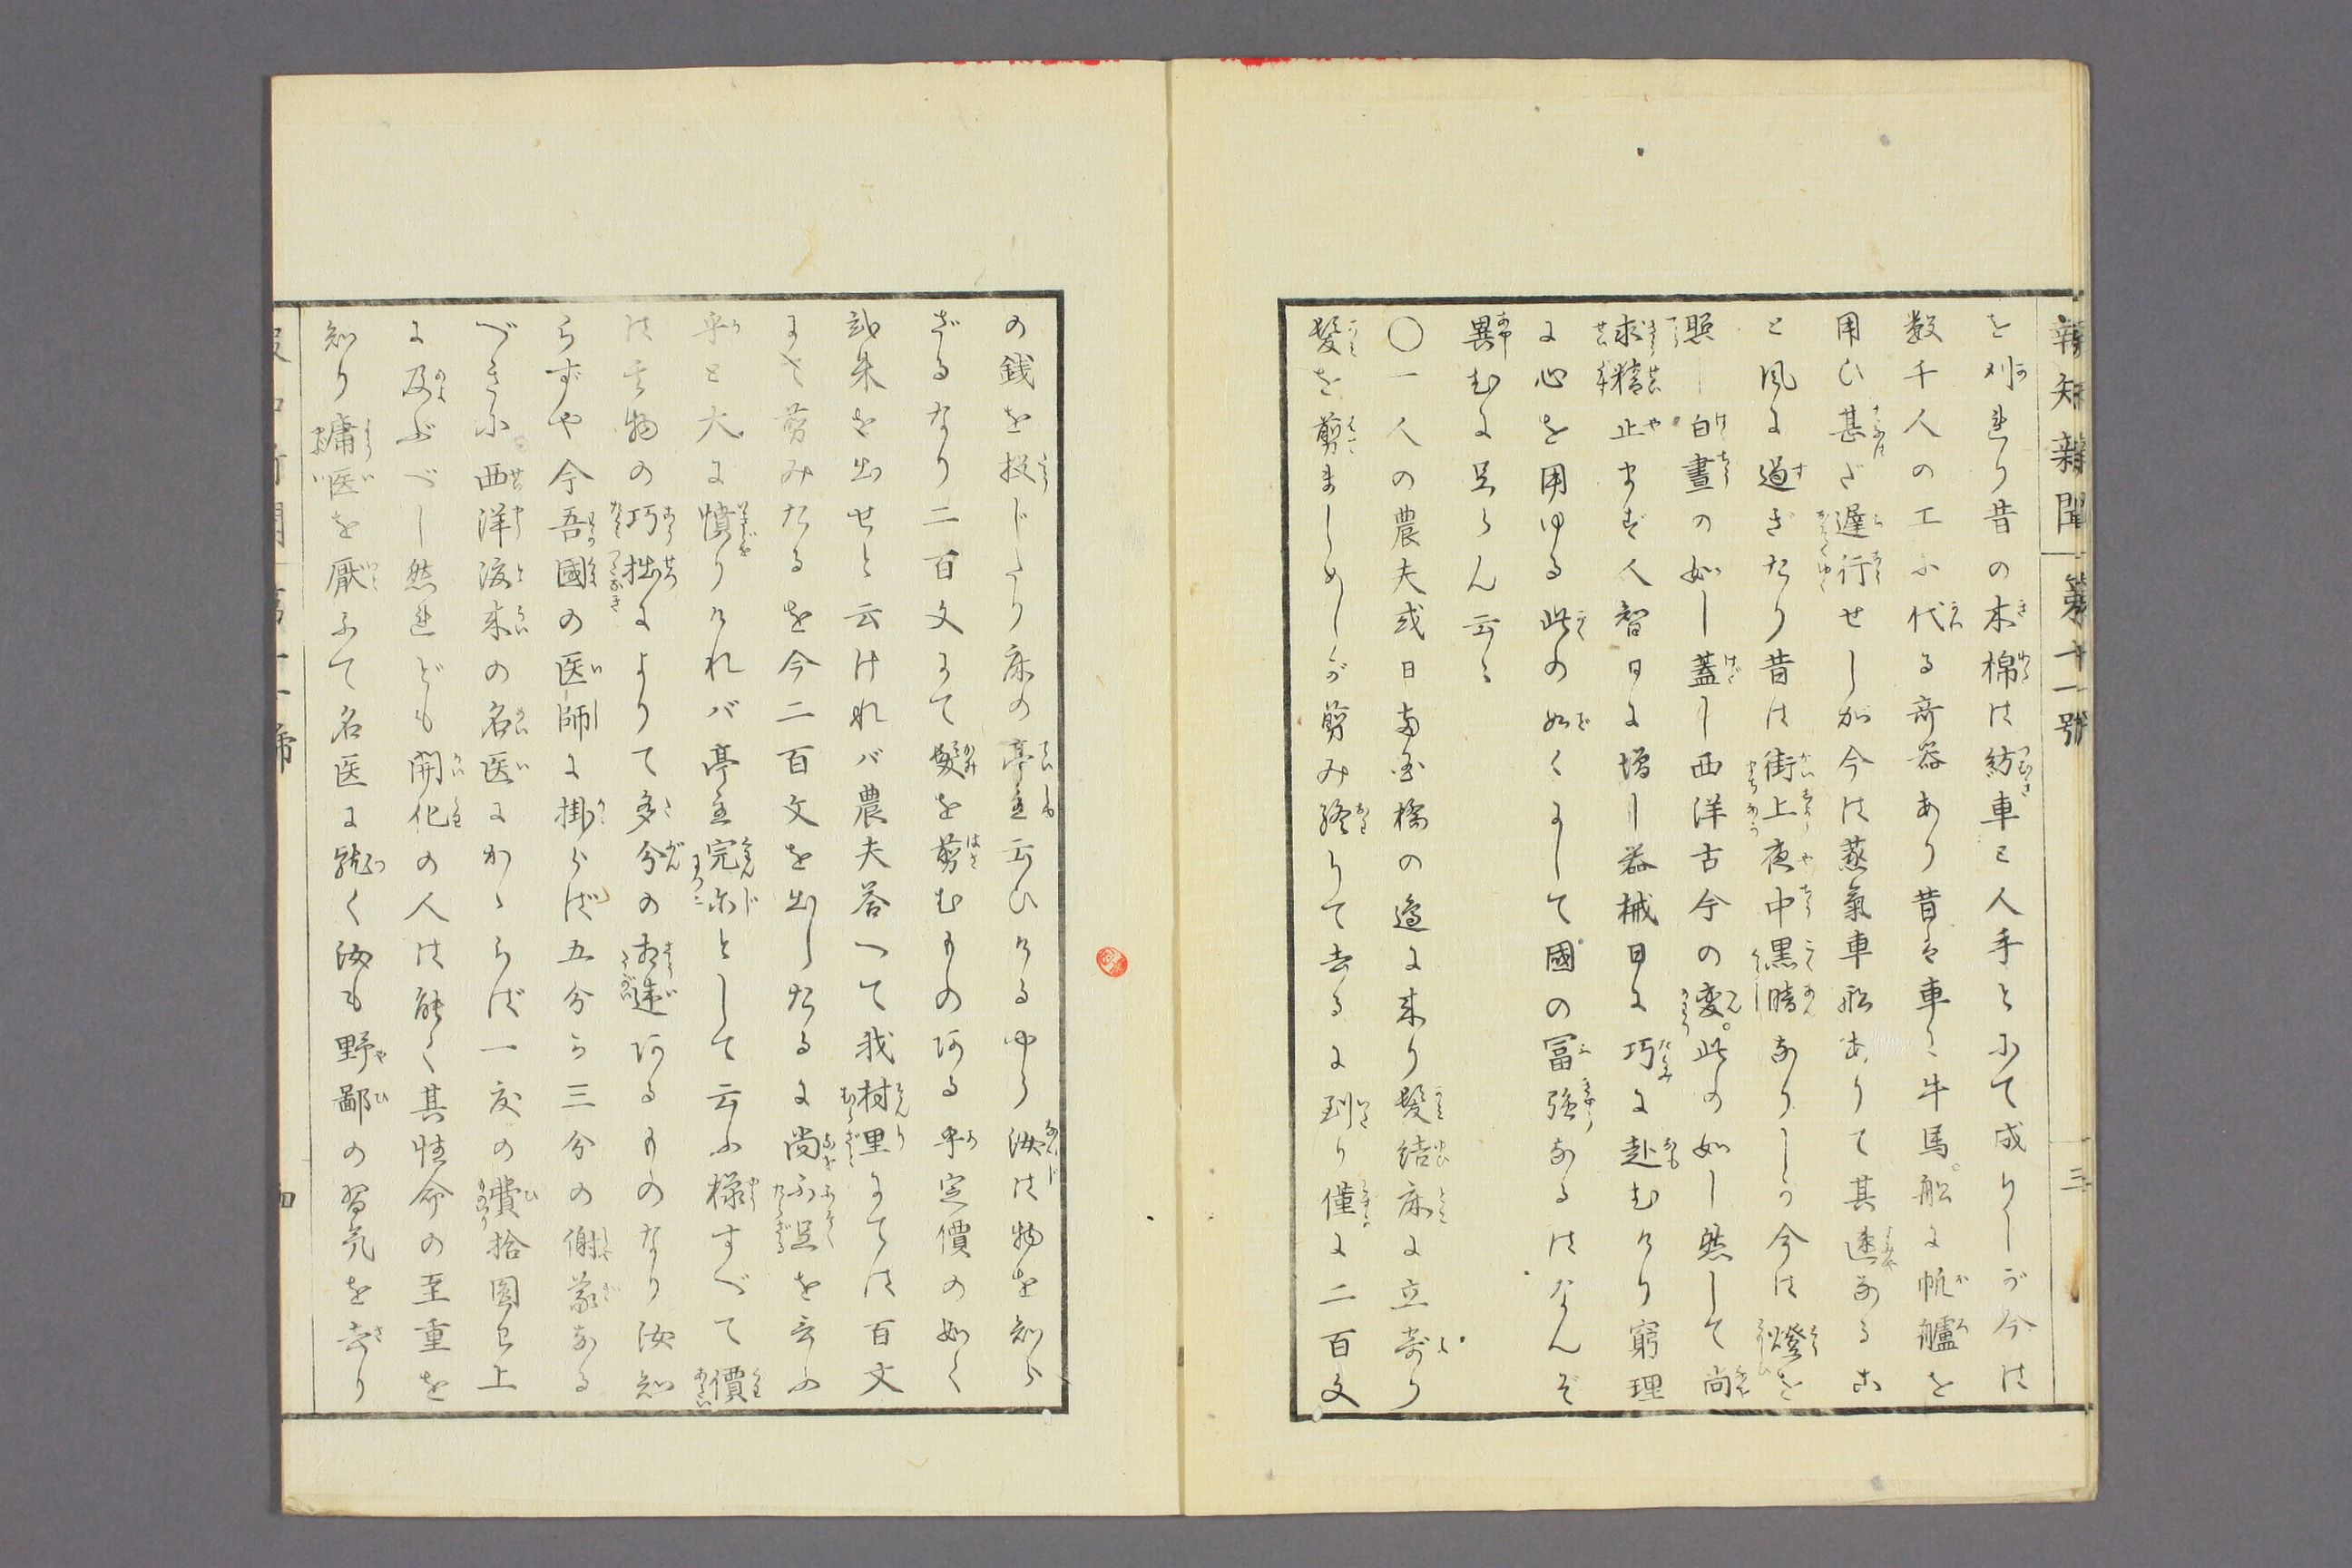 報知新聞 第十一號 三
を刈れり昔の木棉は紡車と人手とふて成りしが今は
数千人の工ふ代る奇器あり昔は車に牛馬船に帆艫を
用ひ甚ざ遅行せしが今は蒸氣車船ありて其速なるこ
と風に過ぎたり昔は街上夜中黒暗なりしが今は燈を
照し白晝の如し蓋し西洋古今の変此の如し然して尚
求精止まず人智日に増し器械日に巧に赴むけり窮理
に心を用ゆる此の如くにして國の冨強なるはなんぞ
異むに足らん云々
〇一人の農夫或日両国橋の邉に来り髪結床に立寄り
髪を剪ましめしが剪み終りて去るに到り僅に二百文
の銭を投じたり床の亭主云ひけるやう汝は物を知ら
ざるなり二百文にて髪を剪むものある乎定價の如く
弐朱を出せと云けれバ農夫答へて我村里にては百文
にて剪みたるを今二百文を出したるに尚不足を云ふ
乎と大に憤りけれバ亭主完尓として云ふ様すべて價
は其物の巧拙によりて多分の相違あるものなり汝知
らずや今吾國の医師に掛らば五分か三分の謝義なる
べきふ西洋渡来の名医にかゝらば一度の費拾圓已上
に及ぶべし然れども開化の人は能く其性命の至重を
知り庸医を厭ふて名医に就く汝も野鄙の習気を去り